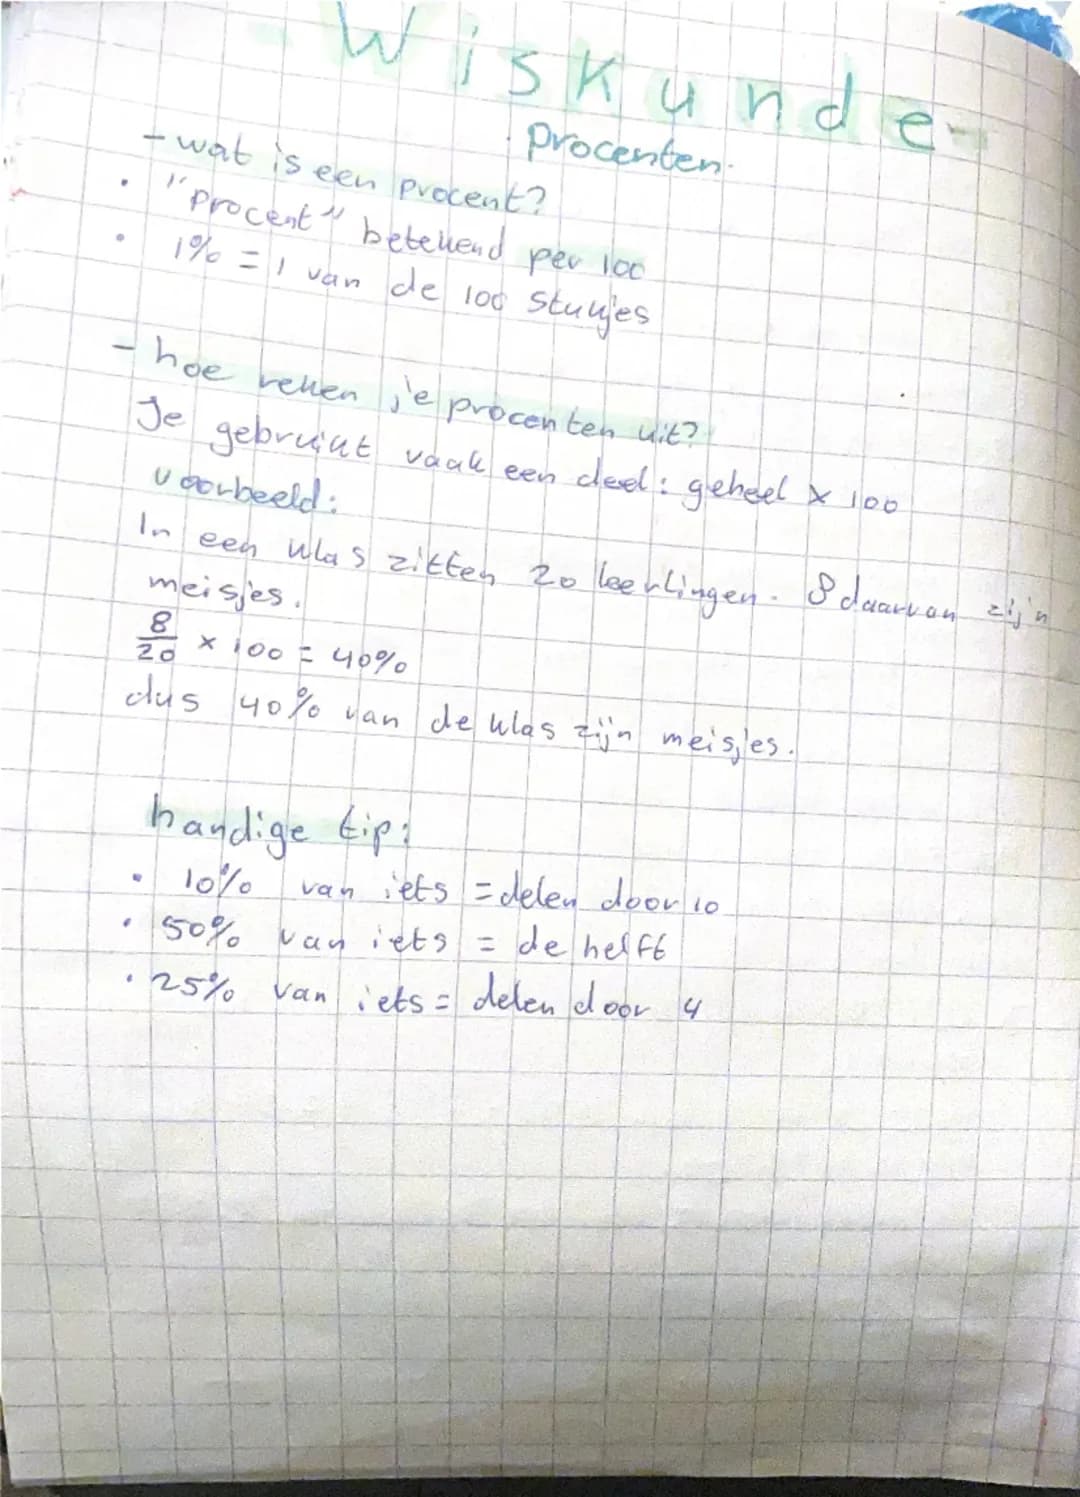 - Wiskunde -
Procenten.
- wat is een procent?
• "Procent" betekend per 100
• 1% = 1 van de 100 stukjes
- hoe reken je procenten uit?
Je gebruikt vaak een deel : geheel x 100
voorbeeld:
In een klas zitten 20 leerlingen. 8 daarvan zijn
meisjes.
8/20 x 100 = 40%
dus 40% van de klas zijn meisjes.
handige tip:
• 10% van iets = delen door 10
• 50% van iets = de helft
• 25% van iets = delen door 4